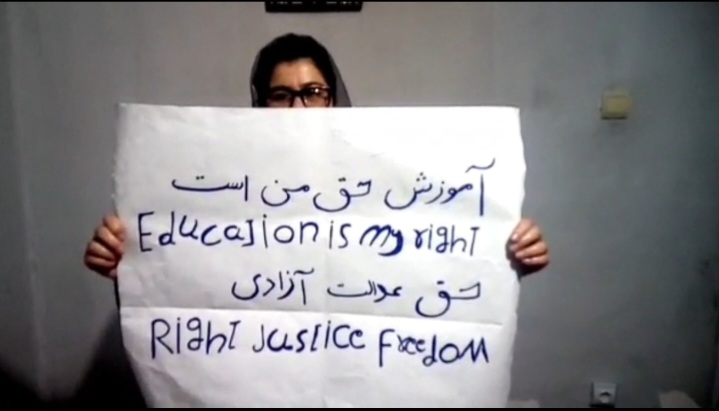 آموزش حق من است
Education is my right
حق عدالت آزادی
Right Justice Freedom